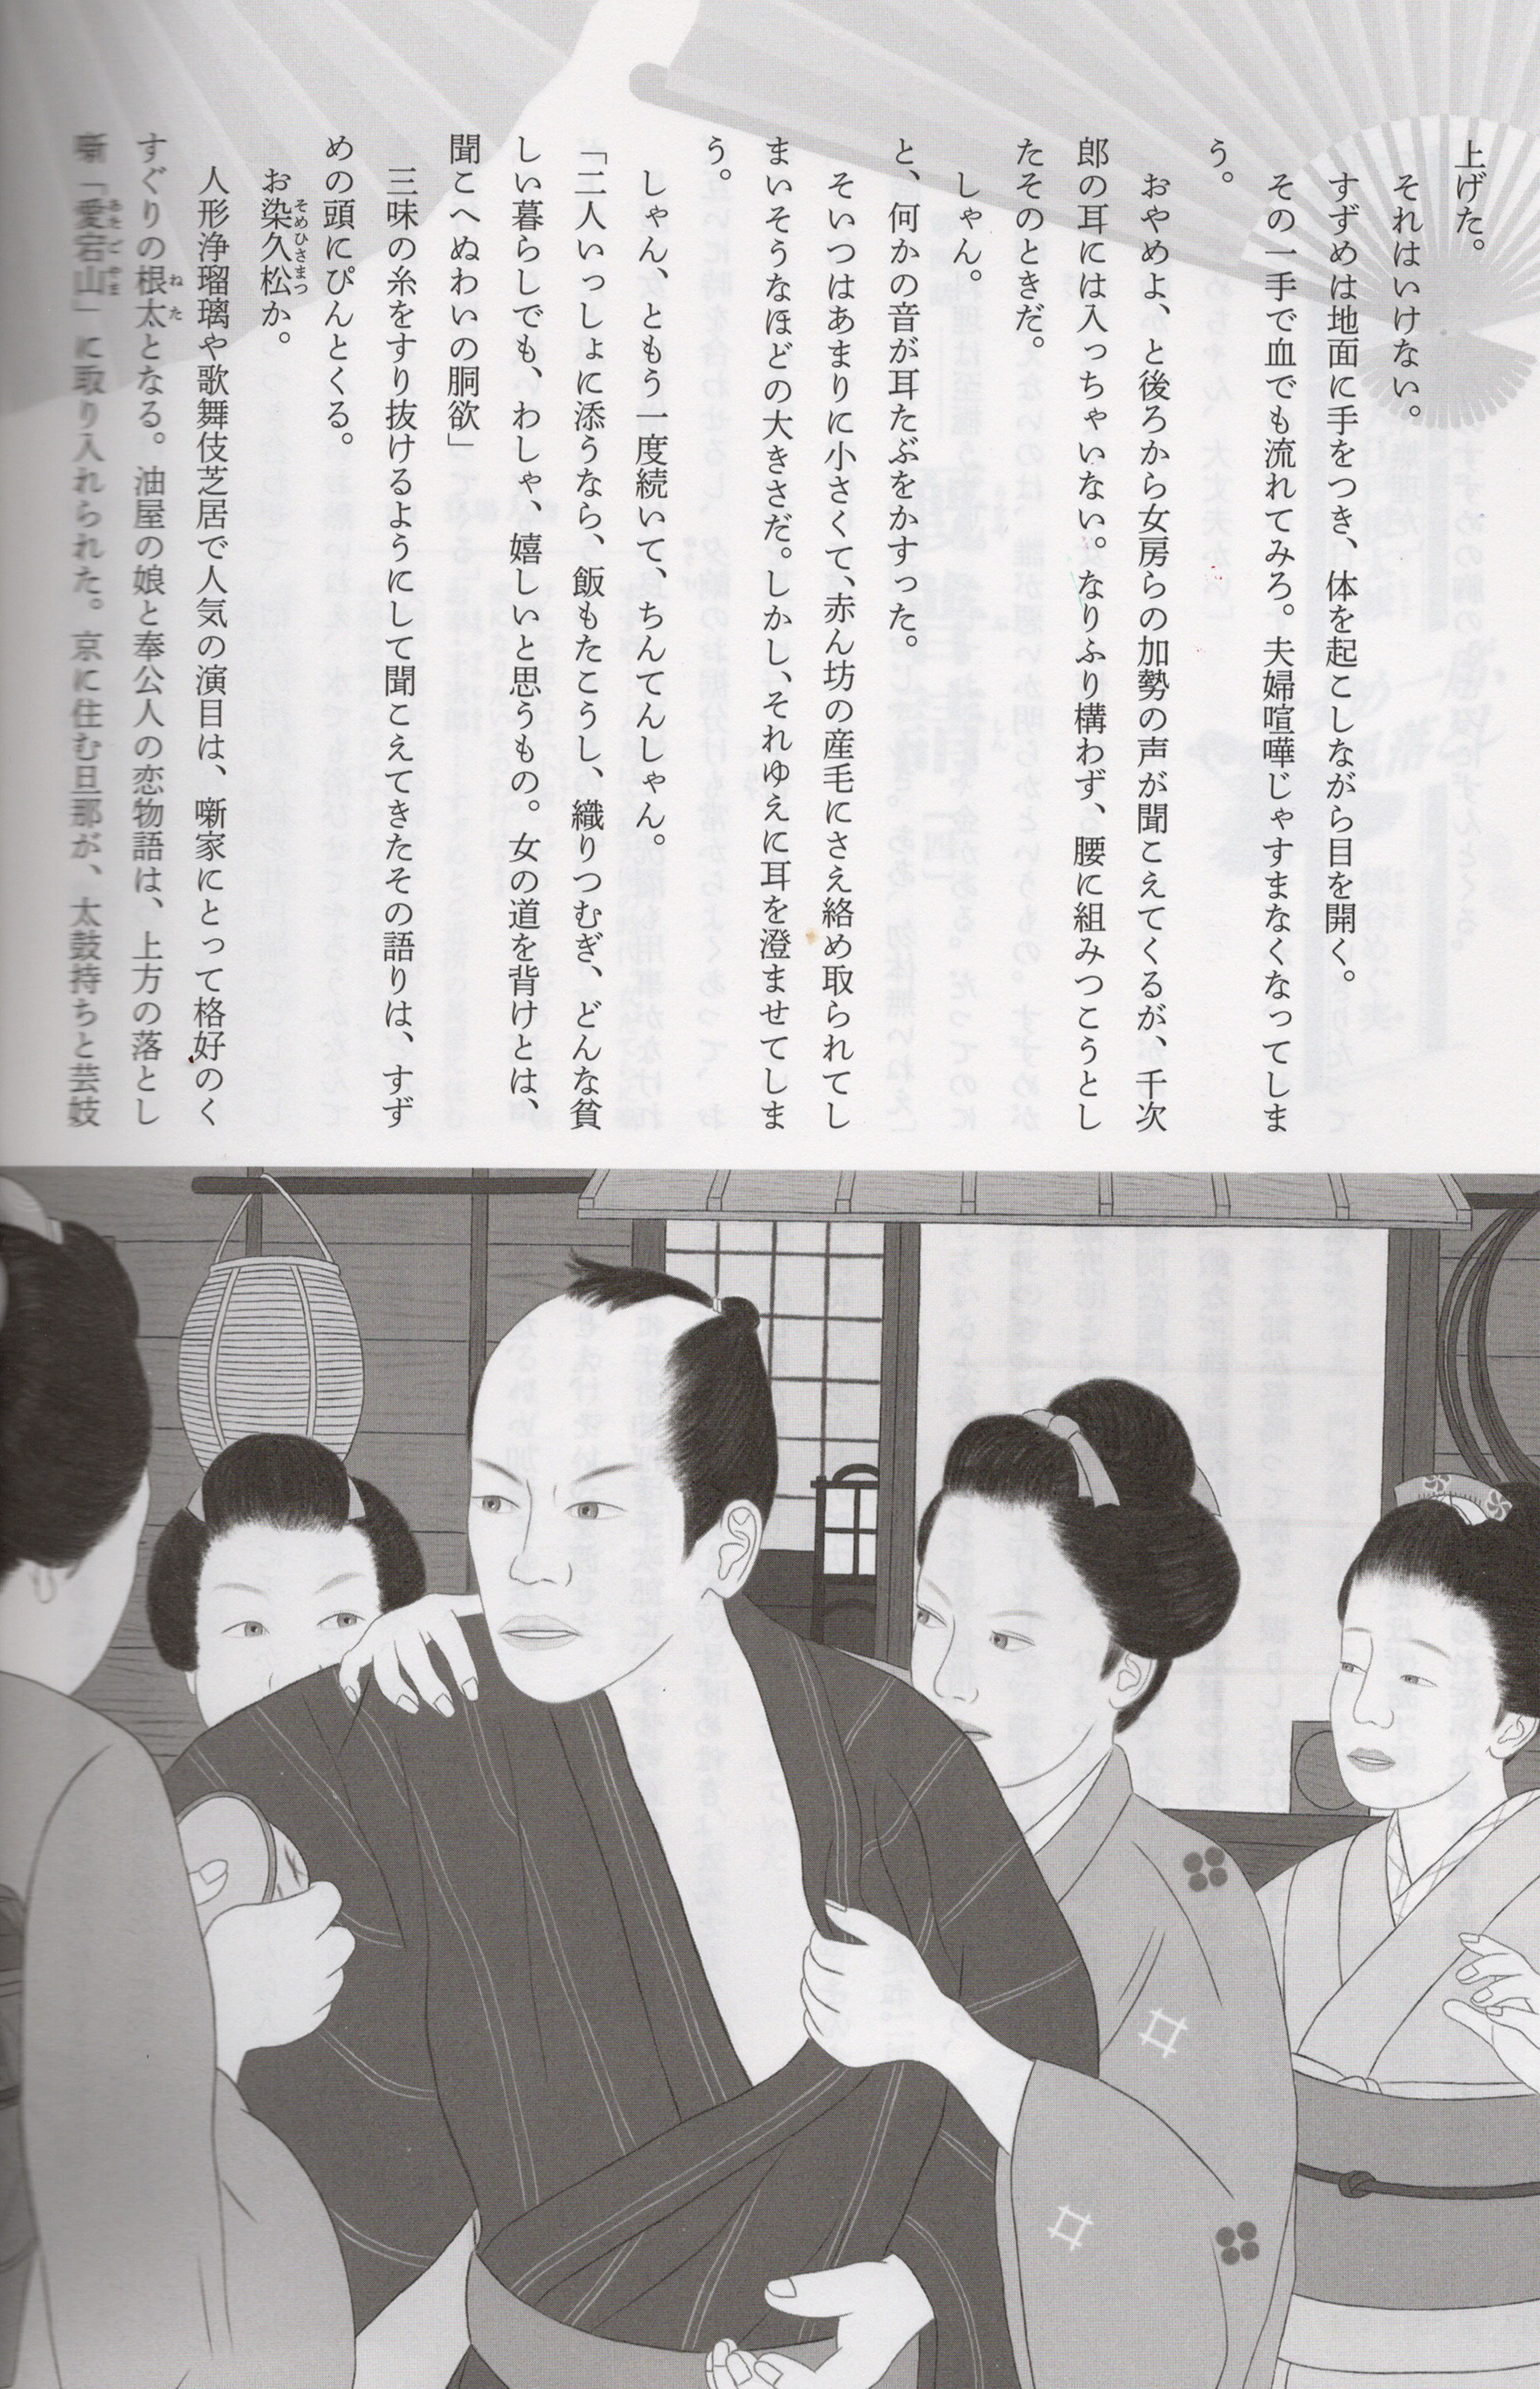 上げた。
それはいけない。
すずめは地面に手をつき、体を起こしながら目を開く。
その一手で血でも流れてみろ。夫婦喧嘩じゃすまなくなってしま
う。
おやめよ、と後ろから女房らの加勢の声が聞こえてくるが、千次
郎の耳には入っちゃいない。なりふり構わず、腰に組みつこうとし
たそのときだ。
しゃん。
と、何かの音が耳たぶをかすった。
そいつはあまりに小さくて、赤ん坊の産毛にさえ絡め取られてし
まいそうなほどの大きさだ。しかし、それゆえに耳を澄ませてしま
う。
しゃん、ともう一度続いて、ちんてんしゃん。
「二人いっしょに添うなら、飯もたこうし、織りつむぎ、どんな貧
しい暮らしでも、わしゃ、嬉しいと思うもの。女の道を背けとは、
聞こへぬわいの胴欲」
三味の糸をすり抜けるようにして聞こえてきたその語りは、すず
めの頭にぴんとくる。
お染久松か。
人形浄瑠璃や歌舞伎芝居で人気の演目は、噺家にとって格好のく
すぐりの根太となる。油屋の娘と奉公人の恋物語は、上方の落とし
噺「愛宕山」に取り入れられた。京に住む旦那が、太鼓持ちと芸妓